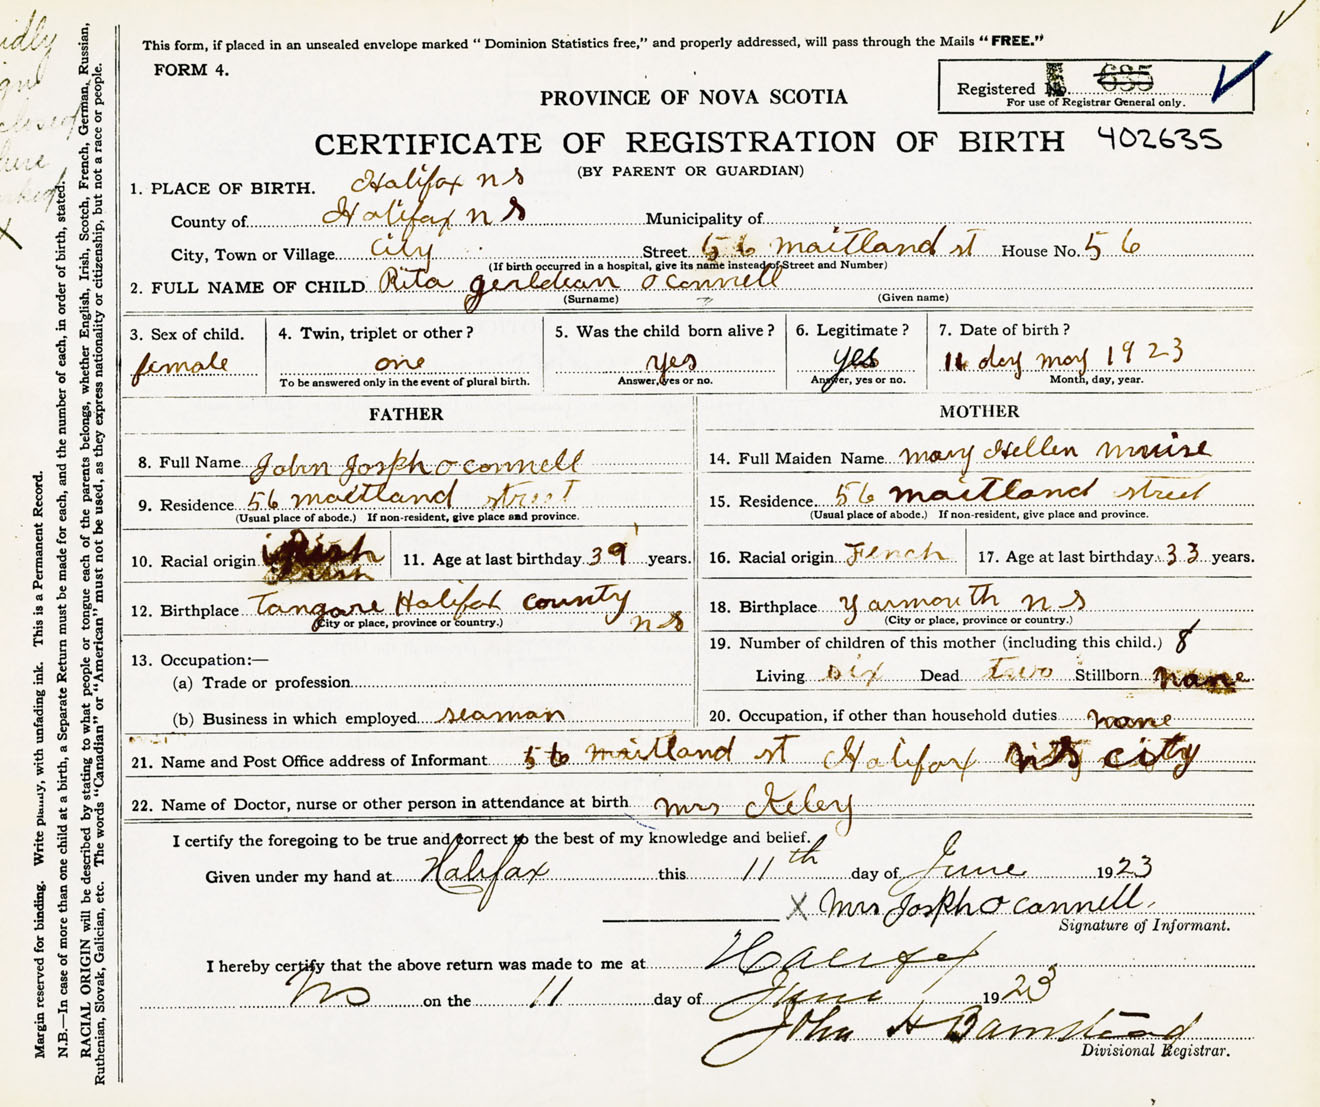 This form, if placed in an unsealed envelope marked "Dominion Statistics free," and properly addressed, will pass through the Mails "FREE."
FORM 4.
Registered No. 635
For use of Registrar General only.
PROVINCE OF NOVA SCOTIA
CERTIFICATE OF REGISTRATION OF BIRTH 402635
(BY PARENT OR GUARDIAN)
1. PLACE OF BIRTH. Halifax n s
County of Halifax n s Municipality of
City, Town or Village City Street 56 maitland st House No. 56
(If birth occurred in a hospital, give its name instead of Street and Number)
2. FULL NAME OF CHILD Rita gerldean o connell
(Surname) (Given name)
3. Sex of child. 4. Twin, triplet or other? 5. Was the child born alive? 6. Legitimate? 7. Date of birth?
female one yes yes 11 day may 1923
To be answered only in the event of plural birth. Answer, yes or no. Answer, yes or no. Month, day, year.
FATHER MOTHER
8. Full Name John Josph o connell
14. Full Maiden Name mary Hellen muise
9. Residence 56 maitland street
(Usual place of abode.) If non-resident, give place and province.
15. Residence 56 maitland street
(Usual place of abode.) If non-resident, give place and province.
10. Racial origin irish 11. Age at last birthday 39 years.
16. Racial origin Fench 17. Age at last birthday 33 years.
12. Birthplace Tangare Halifax county n s
(City or place, province or country.)
18. Birthplace yarmouth n s
(City or place, province or country.)
13. Occupation:—
(a) Trade or profession
(b) Business in which employed seaman
19. Number of children of this mother (including this child.) 8
Living six Dead two Stillborn nane
20. Occupation, if other than household duties nane
21. Name and Post Office address of Informant 56 maitland st Halifax n s city
22. Name of Doctor, nurse or other person in attendance at birth mrs Keley
I certify the foregoing to be true and correct to the best of my knowledge and belief.
Given under my hand at Halifax this 11th day of June 1923
X Mrs Josph o connell.
Signature of Informant.
I hereby certify that the above return was made to me at Halifax
NS on the 11 day of June 1923
John H Barnstead
Divisional Registrar.
Margin reserved for binding. Write plainly, with unfading ink. This is a Permanent Record.
N.B.—In case of more than one child at a birth, a Separate Return must be made for each, and the number of each, in order of birth, stated.
RACIAL ORIGIN will be described by stating to what people or tongue each of the parents belongs, whether English, Irish, Scotch, French, German, Russian,
Ruthenian, Slovak, Galician, etc. The words "Canadian" or "American" must not be used, as they express nationality or citizenship, but not a race or people.